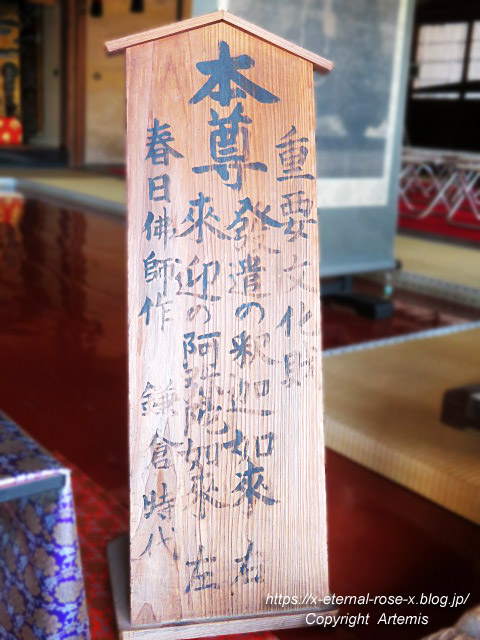 本尊
重要文化財
発遣の釈迦如來 右
來迎の阿弥陀如來 左
春日佛師作 鎌倉時代
https://x-eternal-rose-x.blog.jp/
Copyright Artemis